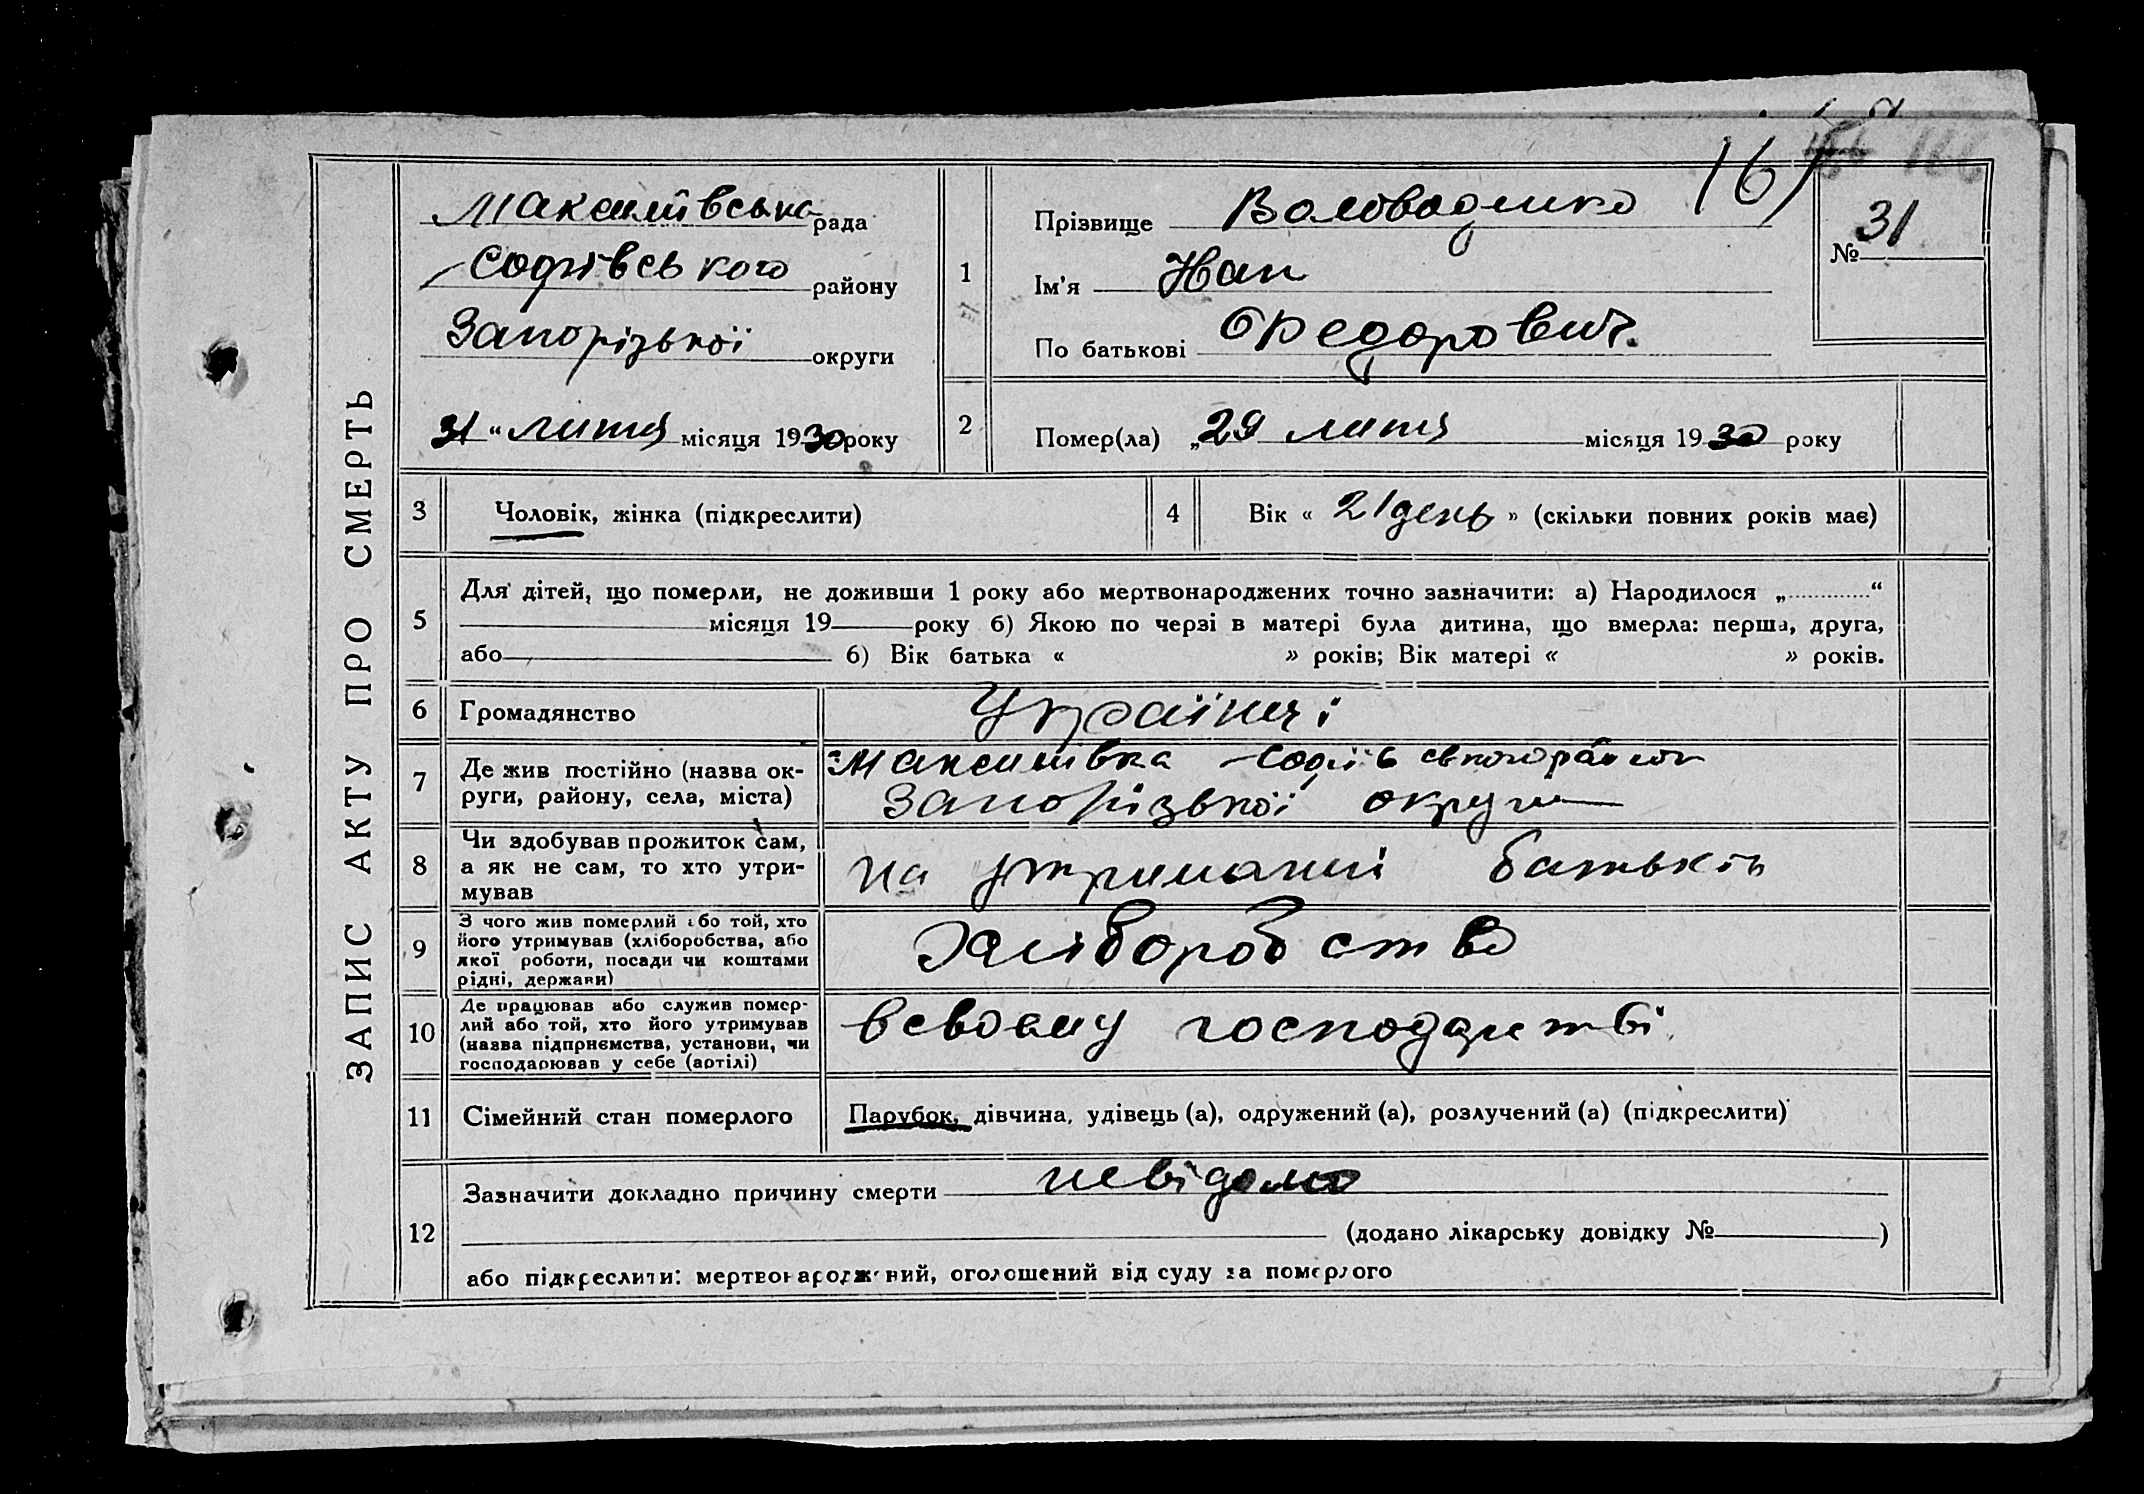 161 166
ЗАПИС АКТУ ПРО СМЕРТЬ
Максимівська рада
Софіївського району
Запорізької округи
31 " лютя місяця 1930 року
1
Прізвище
Ім'я Иван
По батькові Федорович.
№ 31
2
Помер(ла) „29 лютя місяця 1930 року
3
Чоловік, жінка (підкреслити)
4
Вік « 21 день » (скільки повних років має)
5
Для дітей, що померли, не доживши 1 року або мертвонароджених точно зазначити: а) Народилося „............“
місяця 19 року б) Якою по черзі в матері була дитина, що вмерла: перша, друга,
або б) Вік батька « » років; Вік матері « » років.
6
Громадянство
Українці
7
Де жив постійно (назва ок-
руги, району, села, міста)
Максимівка Софіївського району
Запорізької округи
8
Чи здобував прожиток сам,
а як не сам, то хто утри-
мував
на утриманні батьків
9
З чого жив померлий або той, хто
його утримував (хліборобства, або
якої роботи, посади чи коштами
рідні, держави)
Хліборобство
10
Де працював або служив помер-
лий або той, хто його утримував
(назва підприємства, установи, чи
господарював у себе (артілі)
в своєму господарстві
11
Сімейний стан померлого
Парубок, дівчина, удівець (а), одружений (а), розлучений (а) (підкреслити)
12
Зазначити докладно причину смерти невідомо
(додано лікарську довідку № )
або підкреслити: мертвонароджений, оголошений від суду за померлого